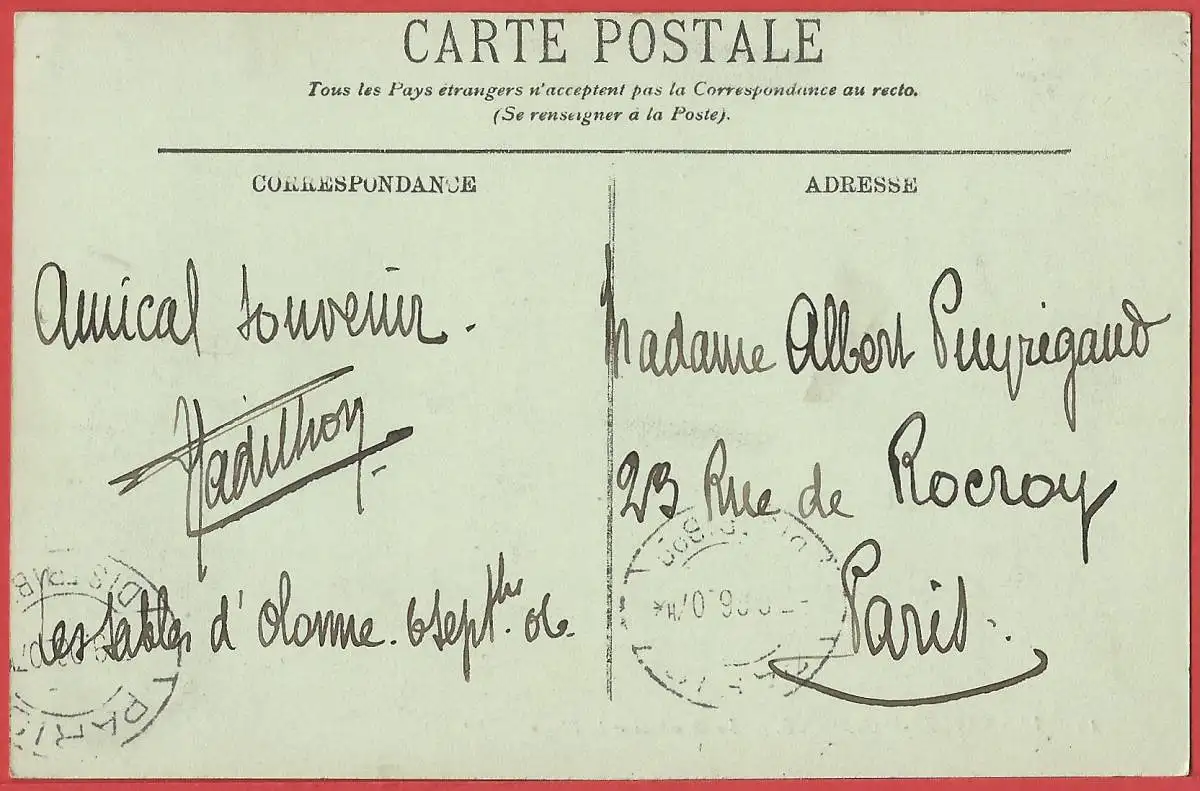 CARTE POSTALE
Tous les Pays étrangers n'acceptent pas la Correspondance au recto.
(Se renseigner à la Poste).
CORRESPONDANCE
ADRESSE
Amical souvenir.
Madame Albert Puyrigaud
23 Rue de Rocroy
Paris.
les Sables d'Olonne. 6 Sept.bre 06.
PARIS
DISTRIB